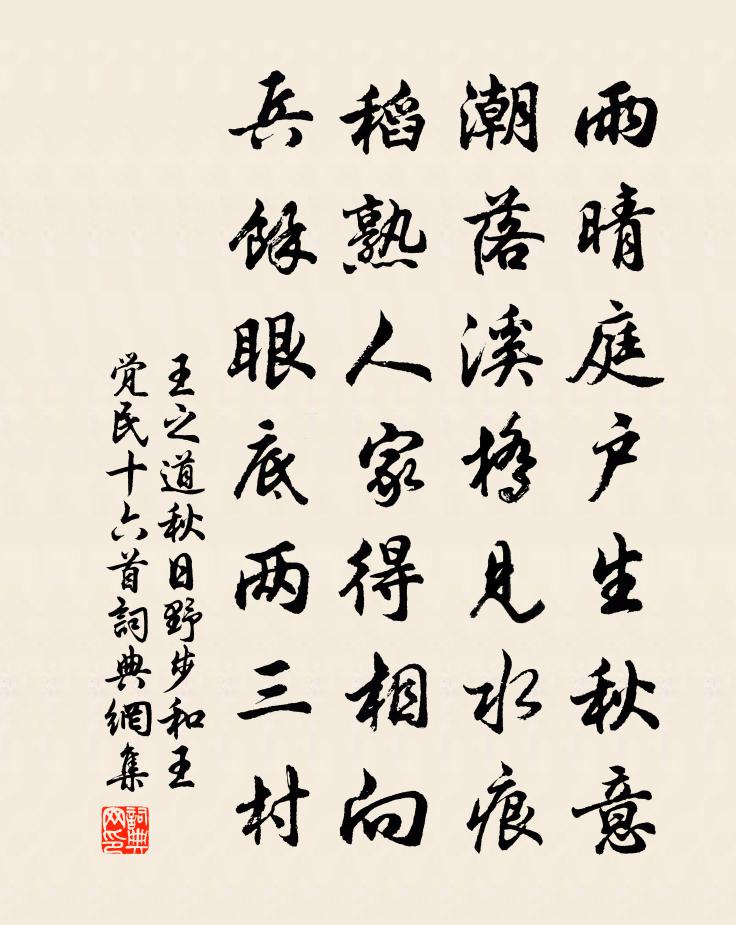 雨晴庭户生秋意
潮落溪橋見水痕
稻熟人家得相向
兵餘眼底两三村
王之道秋日野步和王
觉民十六首詞典網集
詞典网印